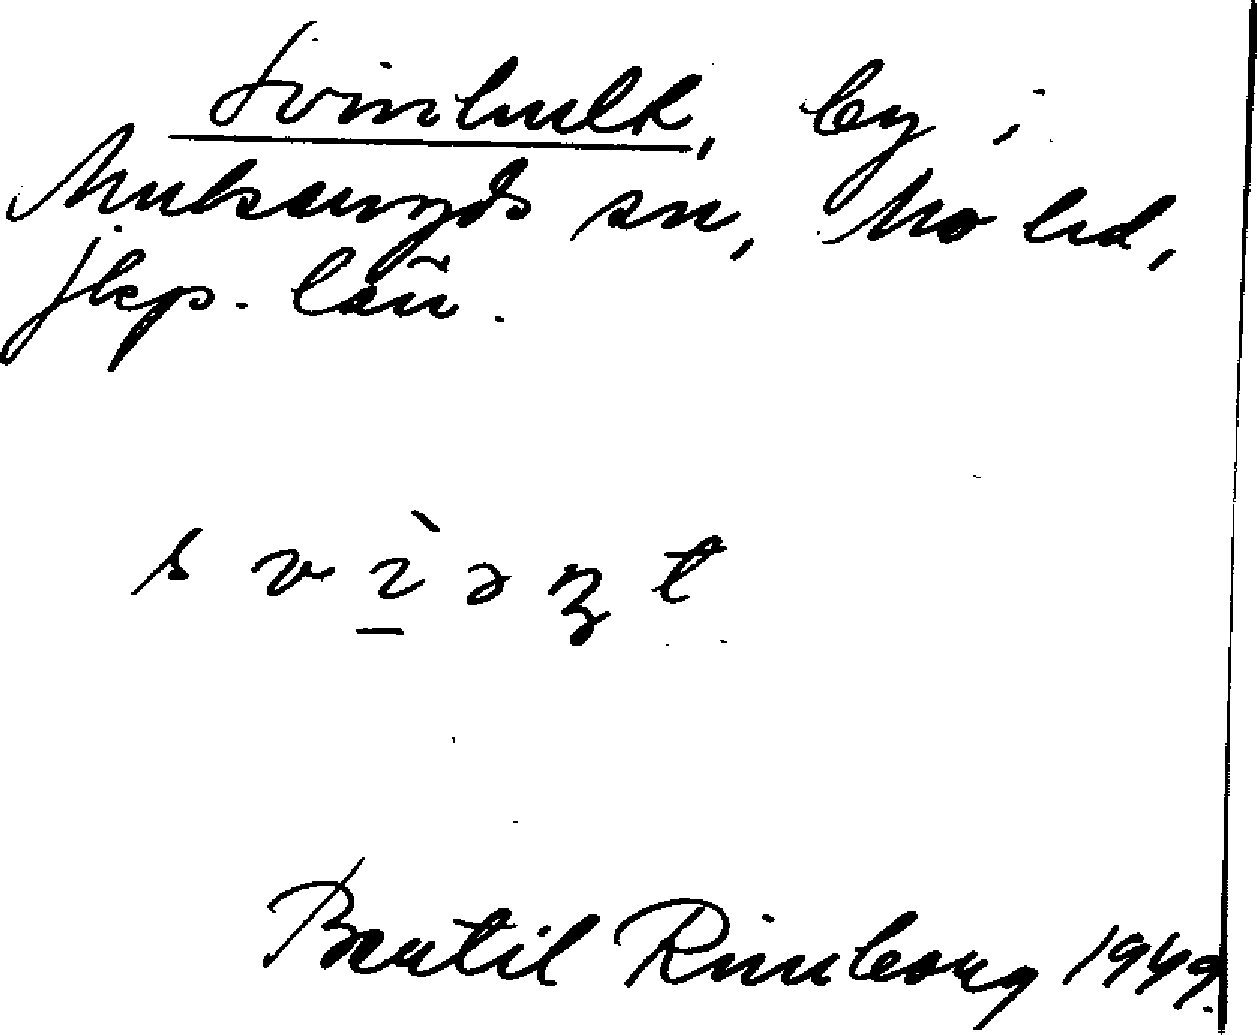 Svinhult, by i
Mulseryds sn, Mo hd,
Jkp. län.
Bertil 1949.